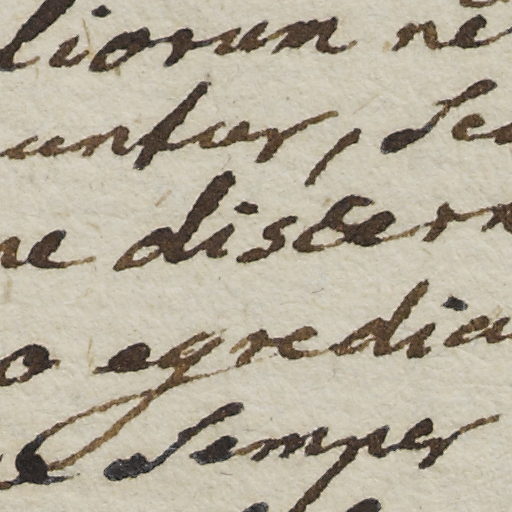 liorum ne
untur, se
ne discer
o egredia
semper